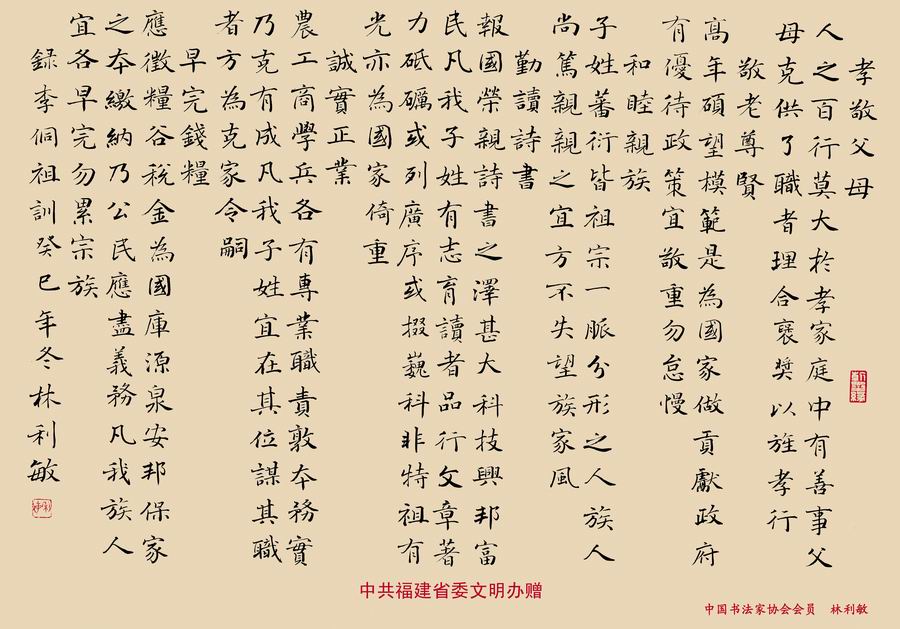 孝敬父母
人之百行莫大於孝家庭中有善事父
母克供了職者理合褒奬以旌孝行
敬老尊賢
高年碩望模範是為國家做貢獻政府
有優待政策宜敬重勿怠慢
和睦親族
子姓蕃衍皆祖宗一脈分形之人族人
尚篤親親之宜方不失望族家風
勤讀詩書
報國榮親詩書之澤甚大科技興邦富
民凡我子姓有志育讀者品行文章著
力砥礪或列廣序或掇巍科非特祖有
光亦為國家倚重
誠實正業
農工商學兵各有專業職責敦本務實
乃克有成凡我子姓宜在其位謀其職
者方為克家令嗣
早完錢糧
應徵糧谷稅金為國庫源泉安邦保家
之本繳納乃公民應盡義務凡我族人
宜各早完勿累宗族
錄李侗祖訓癸巳年冬林利敏
中共福建省委文明办赠
中国书法家协会会员 林利敏